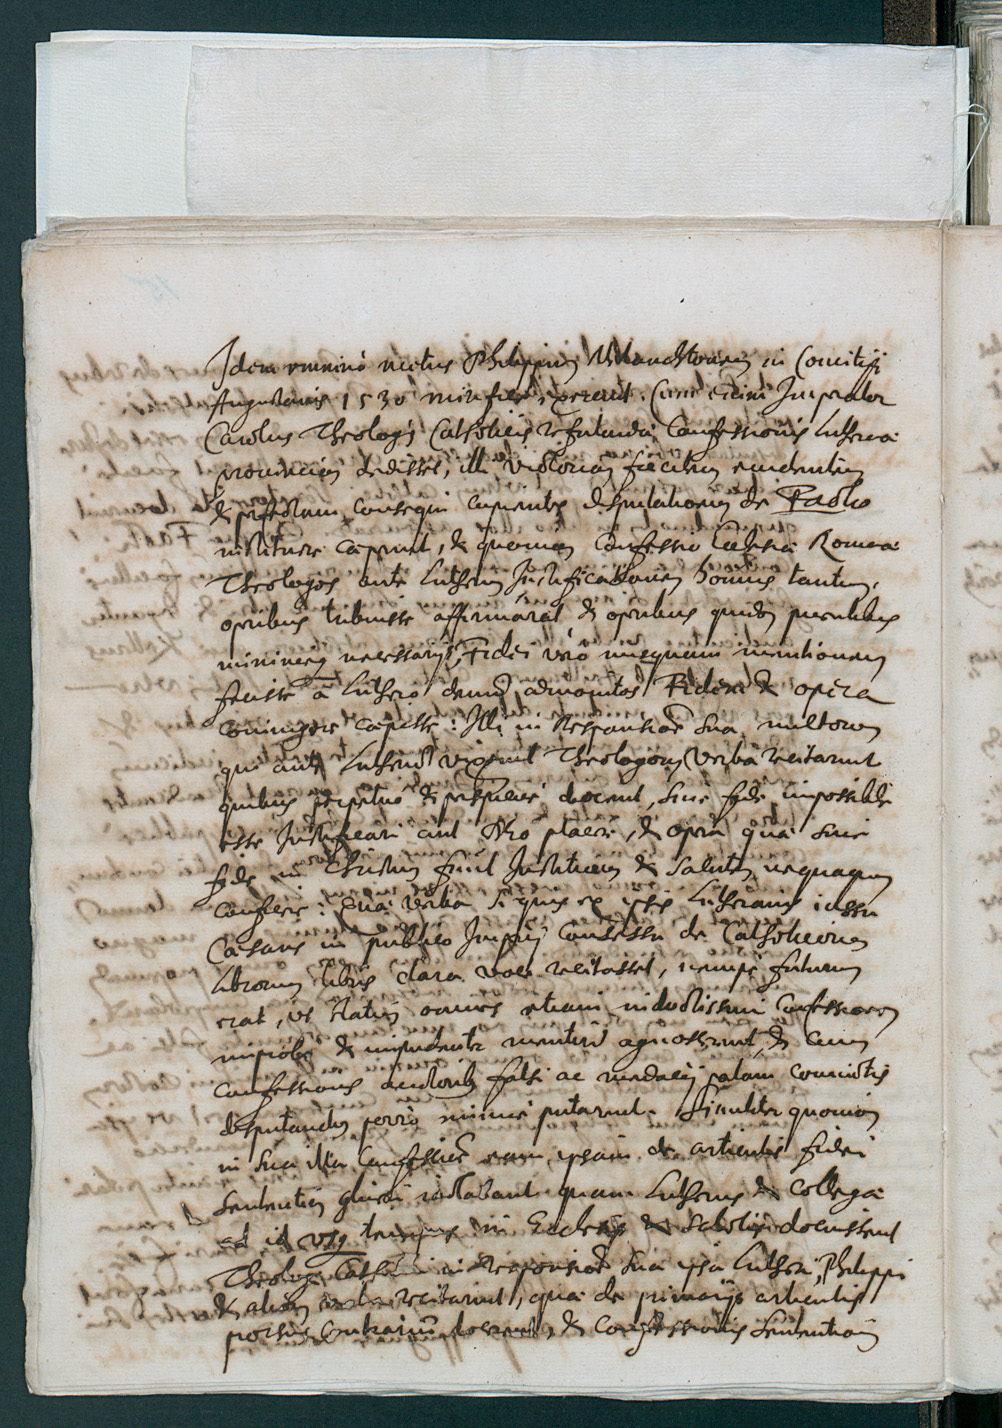 Idem omnino metus Philippum Melanchtonem in Comitijs
Augustanis 1530 inuasit. Cum enim Imperator
Carolus Theologis Catholicis refutandae Confessionis Lutheranae
prouinciam dedisset, illi victoriam facilem euidentem
& consequi cupientes disputationem de Facto
instituere caeperunt, & quoniam Confessio Ecclesiae Romanae
Theologos ante Lutherum Justificationem hominis tantum
operibus tribuisse affirmarat & operibus quidem puerilibus
minimeque necessarijs, Fidei vero nusquam mentionem
fecisse a Luthero demum admonitos Fidem & opera
coniungere caepisse: Illi in Responsione sua multorum
qui ante Lutherum vixerunt Theologorum verba recitarunt
quibus perpetuo & perspicue docent, sine fide impossibile
esse Justificari aut Deo placere, & opera quae sine
fide in Christum fiunt Justitiam & salutem nequaquam
conferre: Quae verba si quis ex ipsis Lutheranis iussu
Caesaris in publico Imperij consessu de Catholicorum
librorum libris clara voce recitasset, nempe futurum
erat, ut statim omnes etiam indoctissimi Confessionem
improbe & impudenter mentiri agnoscerent, & cum
Confessionis authoribus falsi ac mendacij palam conuictis
disputandum porro minime putarent. Similiter quoniam
in sua illa Confessione eam ipsam de articulis fidei
sententiam iactabant quam Lutherus & Collegae
ad id usque tempus in Ecclesijs & scholis docuissent
Theologi Catholici in responsione sua ipsa Lutheri, Philippi
& aliorum verba recitarunt, quae de primarijs articulis
prorsus contrarium docerent, & confessionis sententiam